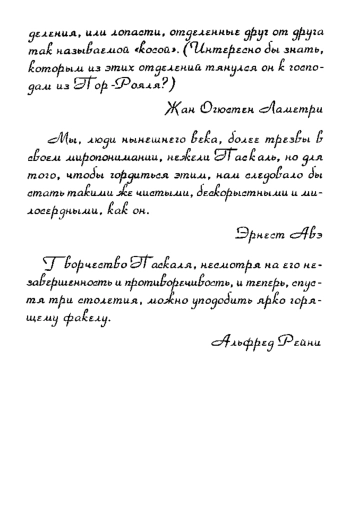 деления, или лопасти, отделенные друг от друга
так называемой «косой». (Интересно бы знать,
которым из этих отделений тянулся он к госпо-
дам из Пор-Рояля?)
Жан Огюстен Ламетри
Мы, люди нынешнего века, более трезвы в
своем миропонимании, нежели Паскаль, но для
того, чтобы гордиться этим, нам следовало бы
стать такими же чистыми, бескорыстными и ми-
лосердными, как он.
Эрнест Авэ
Творчество Паскаля, несмотря на его не-
завершенность и противоречивость, и теперь, спус-
тя три столетия, можно уподобить ярко горя-
щему факелу.
Альфред Рейни